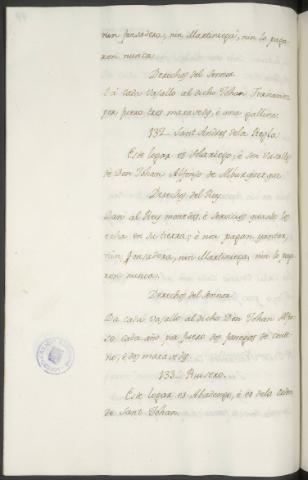 nin fonsadera, nin Martiniega, nin lo paga-
ron nunca.
Derechos del Sennor
Da cada vasallo al dicho Johan
por furzo tres maravedis, é una gallina.
132. Sant Andres de la Regla.
Este logar es Solariego, é son vasallos
de Don Johan Alfonso de Alburquerque
Derechos del Rey
Dan al Rey monedas, é servicios quando los
echa en su tierra; é non pagan yantar,
nin fonsadera, nin Martiniega, nin lo paga-
ron nunca.
Derechos del Sennor
Da cada vasallo al dicho Don Johan Alfon-
so cada año por furzo dos fanegas de cente-
no, é dos maravedis.
133. Rueseco.
Este logar es Abadengo, é es de la orden
de Sant Johan.